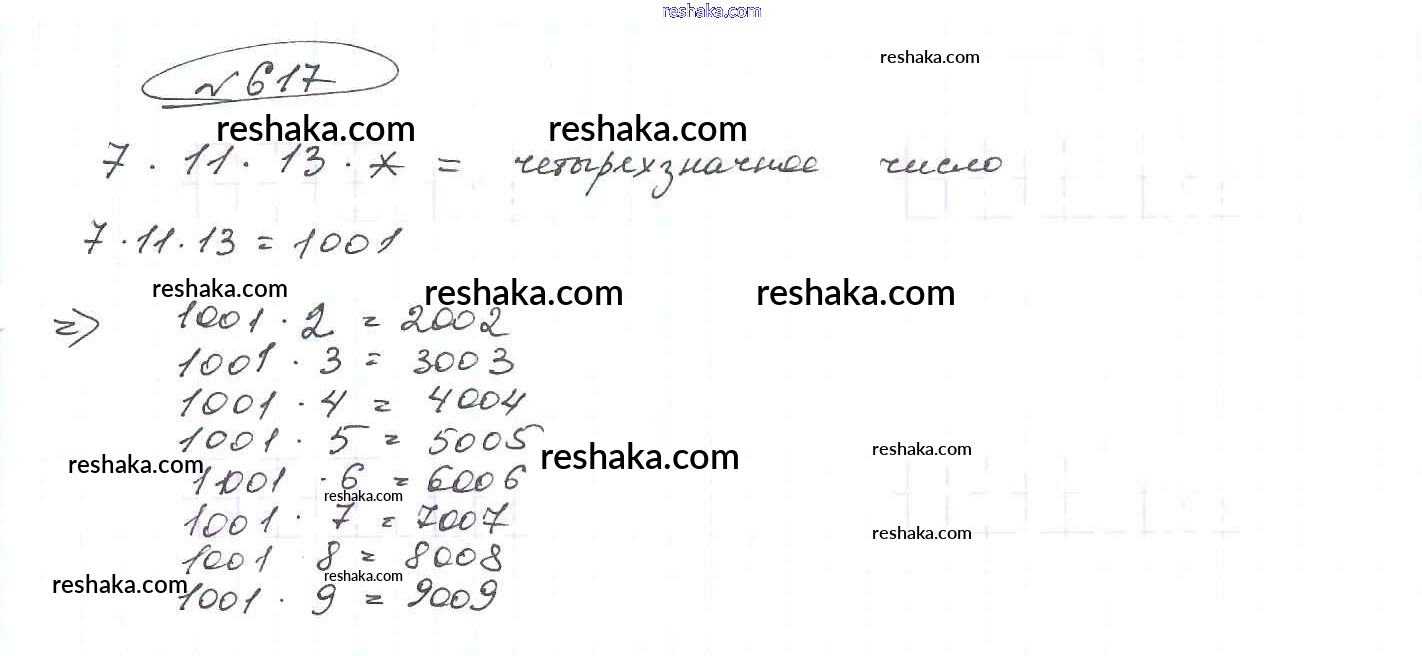 reshaka.com
reshaka.com
№ 617
reshaka.com reshaka.com
7 · 11 · 13 · * = четырехзначное число
7 · 11 · 13 = 1001
reshaka.com reshaka.com reshaka.com
=> 1001 · 2 = 2002
1001 · 3 = 3003
1001 · 4 = 4004
1001 · 5 = 5005
reshaka.com reshaka.com reshaka.com
1001 · 6 = 6006
reshaka.com
1001 · 7 = 7007
reshaka.com
1001 · 8 = 8008
reshaka.com reshaka.com
1001 · 9 = 9009